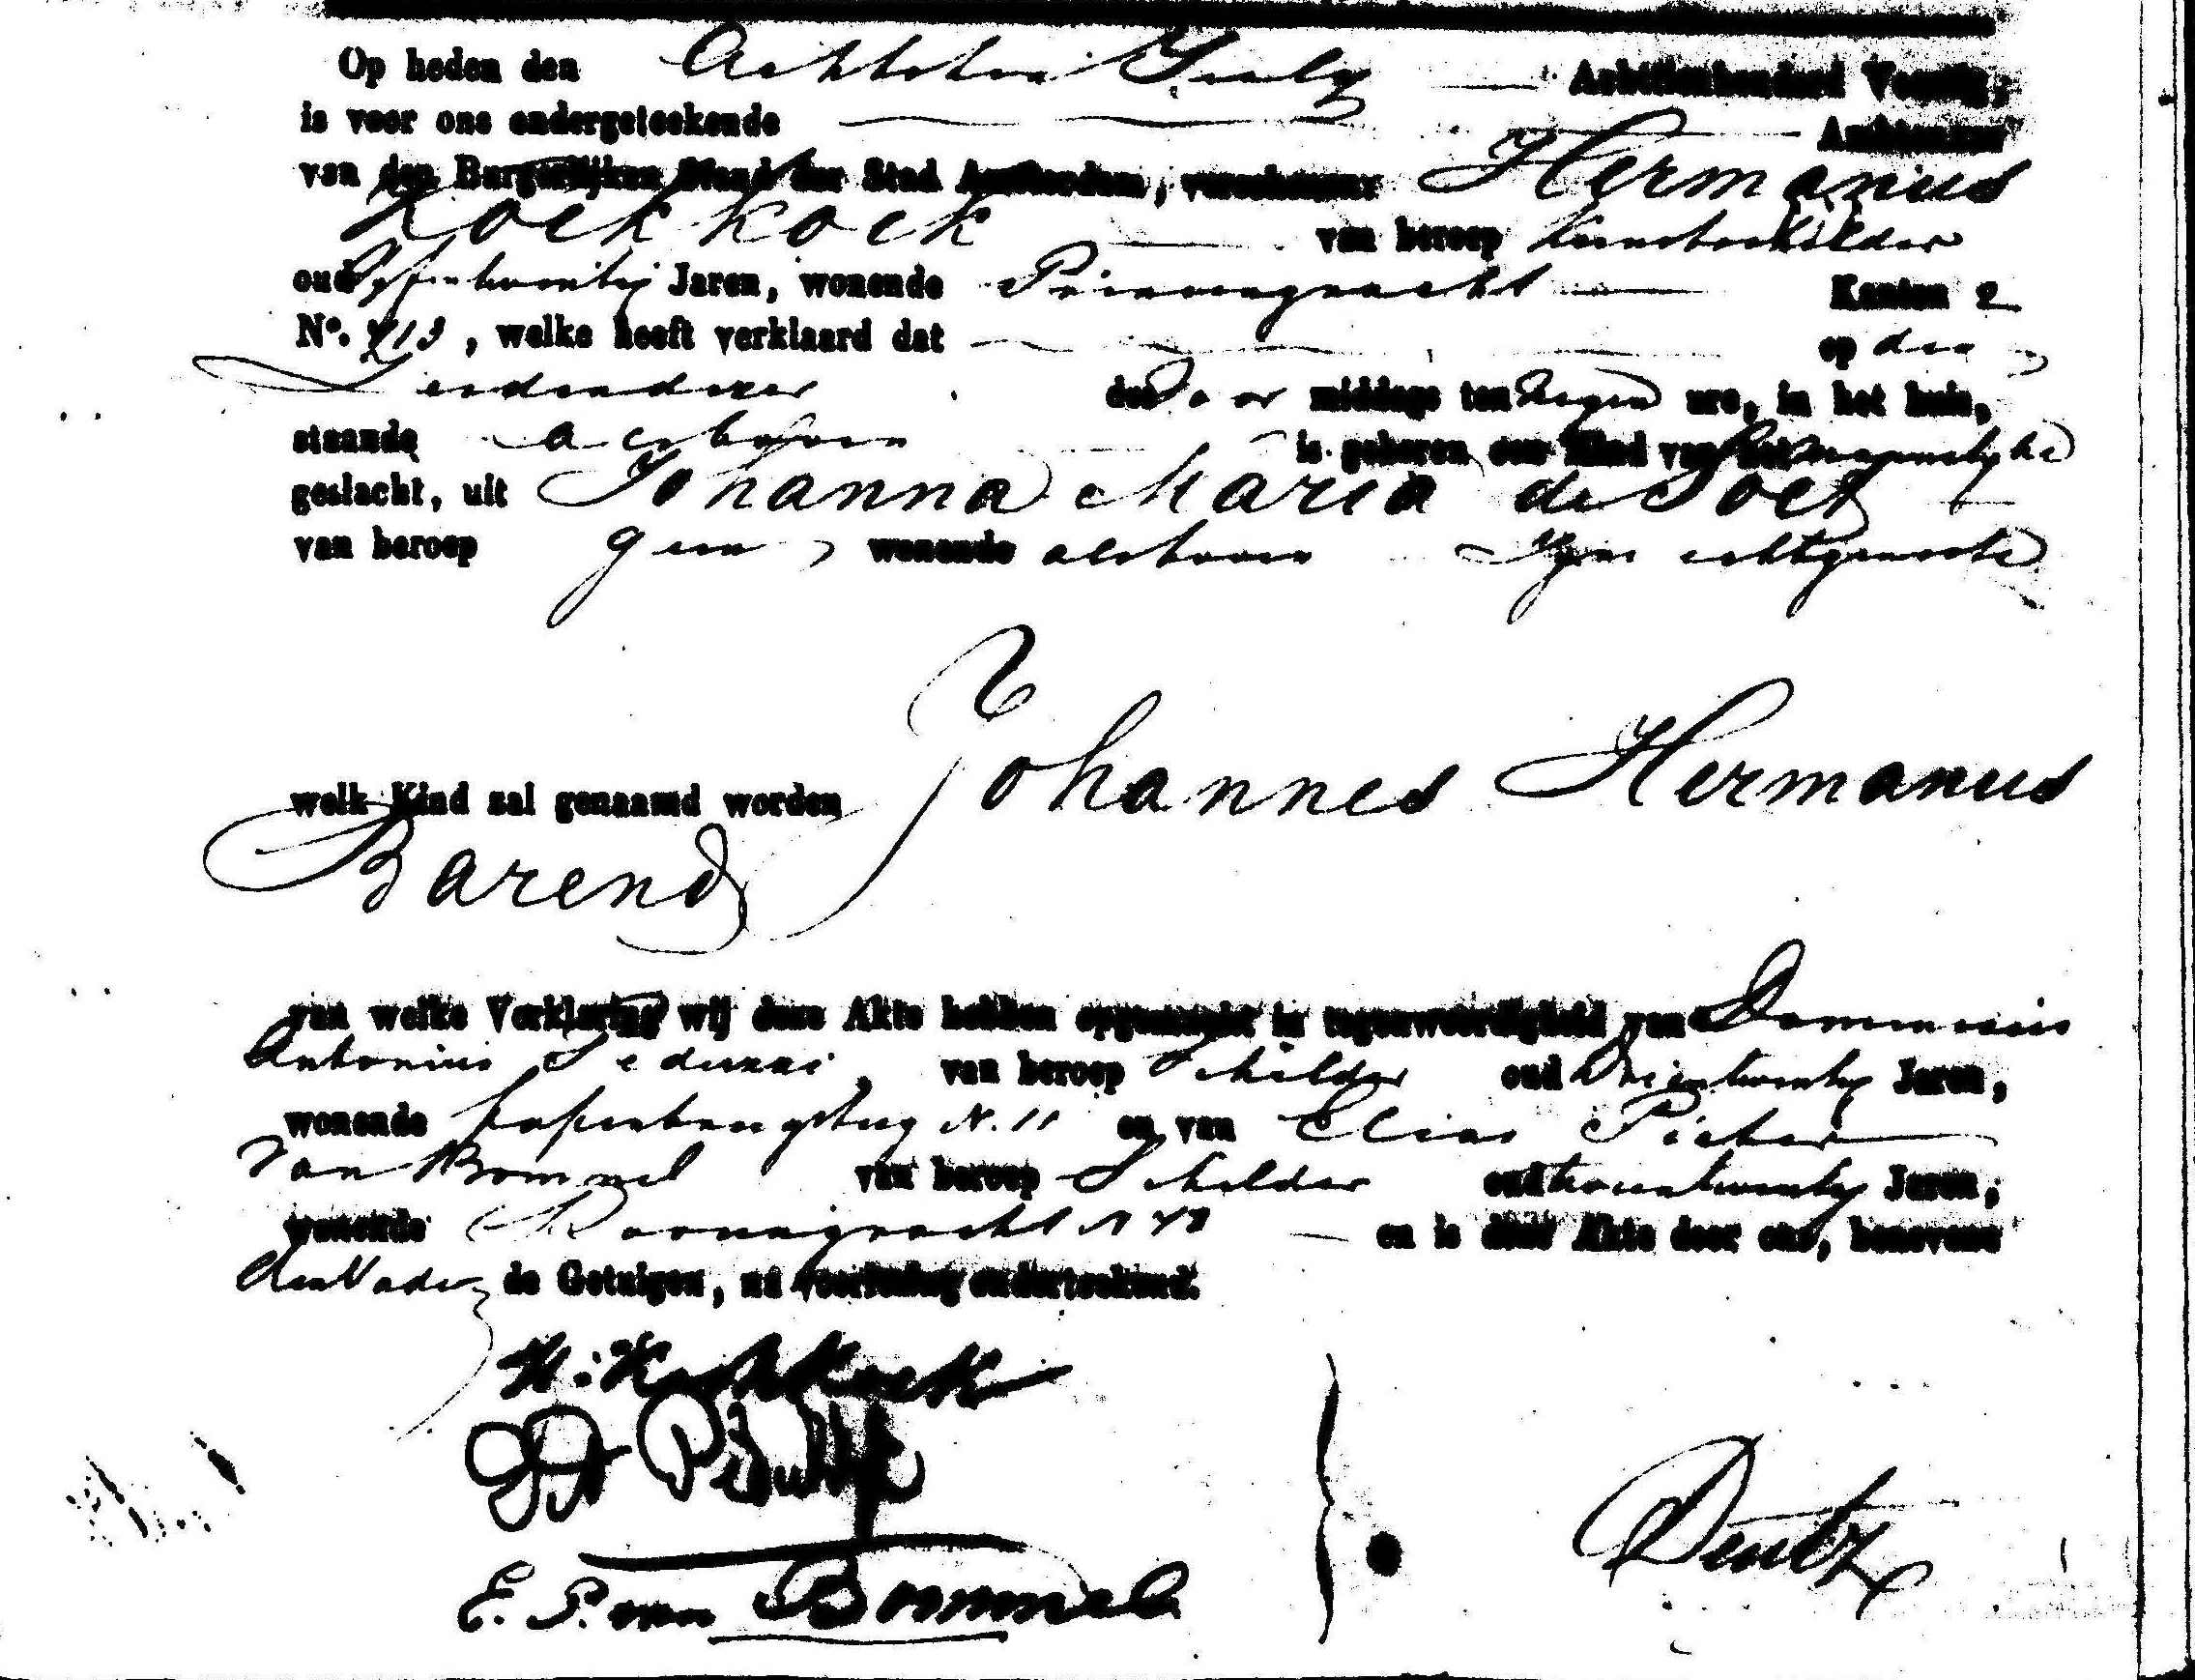 Op heden den Achtsten July Achttienhonderd Veertig,
is voor ons ondergeteekende Ambtenaar
van den Burgerlijken Stand der Stad Amsterdam, verschenen: Hermanus
Koekkoek van beroep kunstschilder
oud Vyfentwintig Jaren, wonende Prinsengracht Kanton 2
No. 713, welke heeft verklaard dat op den
Deezer des Voor middags ten Negen ure, in het huis,
staande alsboven is geboren een Kind van het mannelyke
geslacht, uit Johanna Maria de Soet
van beroep geen, wonende alsboven Zyne echtgenoote
welk Kind zal genaamd worden Johannes Hermanus
Barend
van welke Verklaring wij deze Akte hebben opgemaakt in tegenwoordigheid van Dominicus
Antonius Peduzzi, van beroep Schilder oud Drieentwintig Jaren,
wonende N. 11 en van Elias Pieter
van Bommel van beroep Schilder oud tweeentwintig Jaren,
wonende en is deze Akte door ons, benevens
den Vader de Getuigen, na voorlezing onderteekend.
H: Koekkoek
Peduzzi
E. P. van Bommel
Deutz